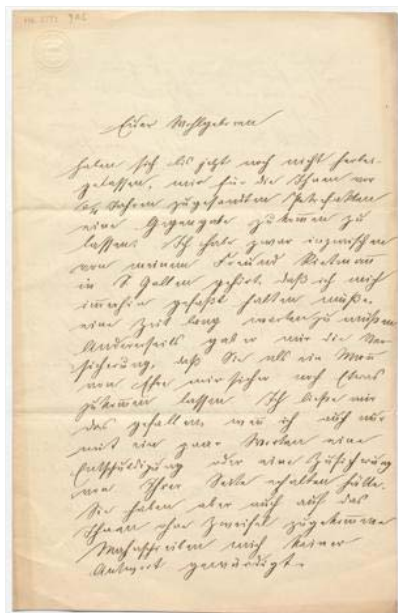 Euer Wohlgeboren
haben sich bis jetzt noch nicht herbei-
gelassen, mir für die Ihnen vor
Jahren zugesandten
eine Gegengabe zukommen zu
lassen. Ich habe zwar inzwischen
von meinem Freund Rietmann
in S Gallen gehört, daß ich mich
immerhin gefaßt halten müße.
eine Zeit lang warten zu müßen
Anderenseits gab er mir die Ver-
sicherung, daß Sie als ein Mann
von Ehre mir sicher noch Etwas
zukommen lassen Ich ließe mir
das gefallen, wen ich auch nur
mit ein paar Worten eine
Entschuldigung oder eine Zusicherung
von Ihrer Seite erhalten hätte.
Sie haben aber auch auf das
Ihnen ohne Zweifel zugekommene
Mahnschreiben mich keiner
Antwort gewürdigt.